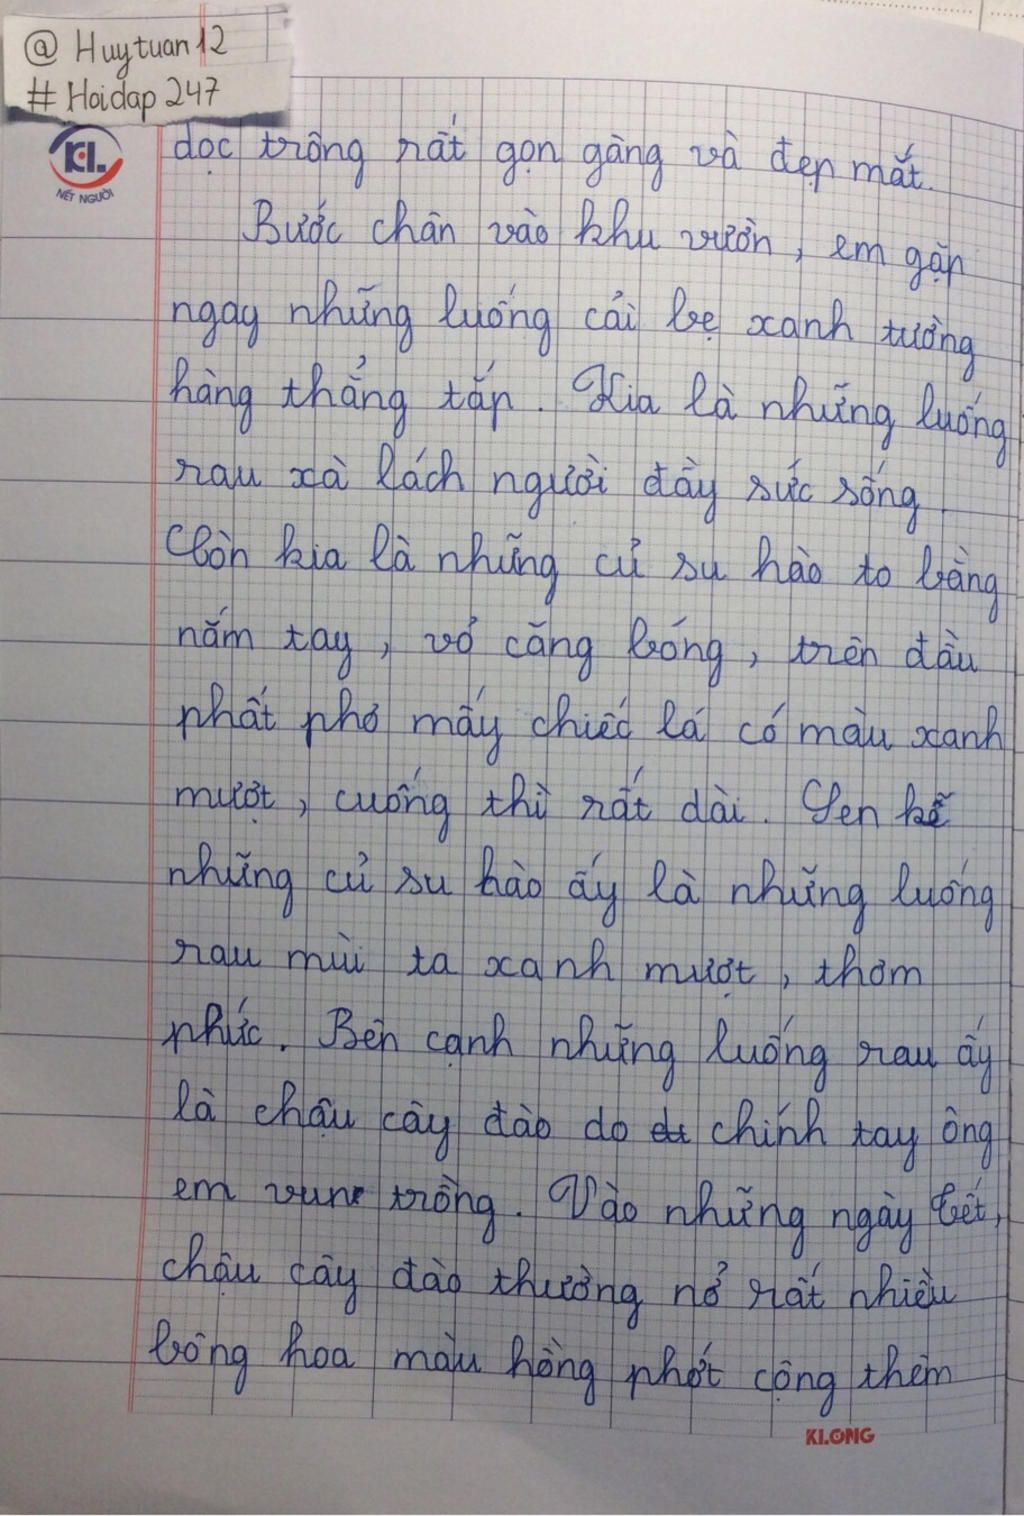 @ Huytuan12
# Hoidap 247
KL
NÉT NGƯỜI
dọc trông rất gọn gàng và đẹp mắt.
Bước chân vào khu vườn, em gặp
ngay những luống cải bẹ xanh tường
hàng thẳng tắp. Kia là những luống
rau xà lách người đầy sức sống
Còn kia là những củ su hào to bằng
nắm tay, vỏ căng bóng, trên đầu
phất phơ mấy chiếc lá có màu xanh
mượt, cuống thì rất dài. Sen kẽ
những củ su hào ấy là những luống
rau mùi ta xanh mượt, thơm
phức. Bên cạnh những luống rau ấy
là chậu cây đào do chính tay ông
em vun trồng. Vào những ngày tết,
chậu cây đào thường nở rất nhiều
bông hoa màu hồng phớt cộng thêm
KLONG